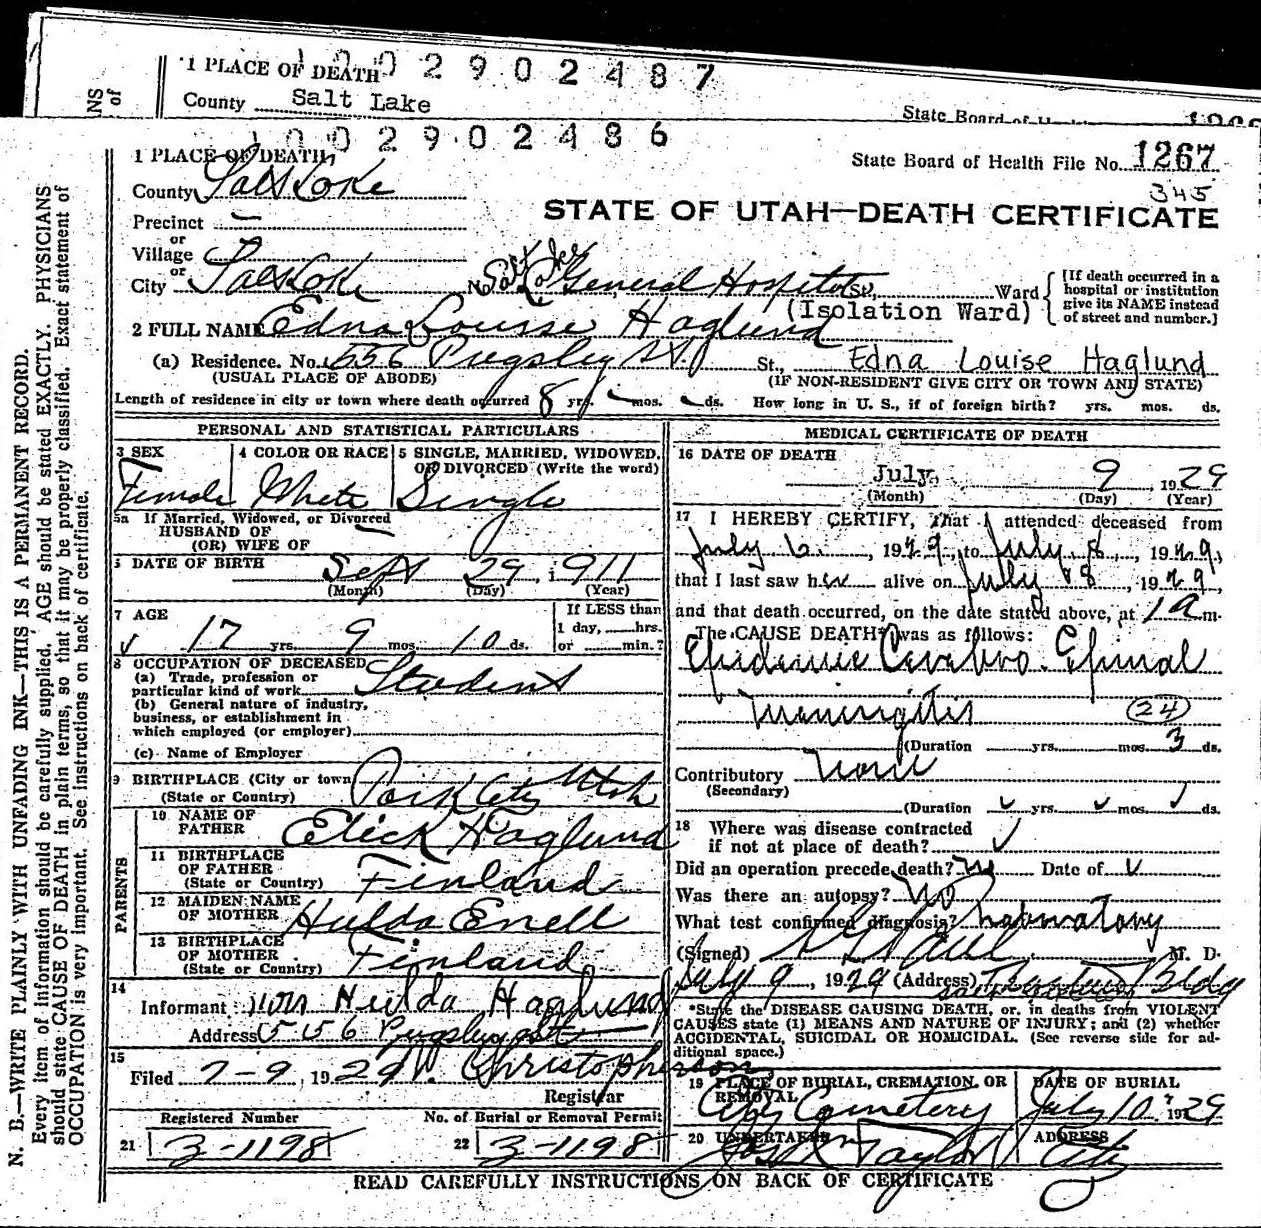 1 PLACE OF DEATH
1002902487
County Salt Lake
State Board of
1002902486
1 PLACE OF DEATH
State Board of Health File No. 1267
County Salt Lake
345
STATE OF UTAH—DEATH CERTIFICATE
Precinct —
or
Village
or
City Salt Lake No. Salt Lake General Hospital St., Ward
(Isolation Ward)
[If death occurred in a
hospital or institution
give its NAME instead
of street and number.]
2 FULL NAME Edna Louise Haglund
(a) Residence. No. 556 Pugsley St., Edna Louise Haglund
(USUAL PLACE OF ABODE) (IF NON-RESIDENT GIVE CITY OR TOWN AND STATE)
Length of residence in city or town where death occurred 8 yrs. - mos. - ds. How long in U. S., if of foreign birth? yrs. mos. ds.
PERSONAL AND STATISTICAL PARTICULARS
3 SEX Female
4 COLOR OR RACE White
5 SINGLE, MARRIED, WIDOWED,
OR DIVORCED (Write the word)
Single
5a If Married, Widowed, or Divorced
HUSBAND OF
(OR) WIFE OF —
6 DATE OF BIRTH Sept 29, 1911
(Month) (Day) (Year)
7 AGE
17 yrs. 9 mos. 10 ds.
If LESS than
1 day, hrs.
or min.?
8 OCCUPATION OF DECEASED
(a) Trade, profession or
particular kind of work Student
(b) General nature of industry,
business, or establishment in
which employed (or employer)
(c) Name of Employer
9 BIRTHPLACE (City or town)
(State or Country) Park City Utah
PARENTS
10 NAME OF
FATHER Elick Haglund
11 BIRTHPLACE
OF FATHER
(State or Country) Finland
12 MAIDEN NAME
OF MOTHER Hulda Enell
13 BIRTHPLACE
OF MOTHER
(State or Country) Finland
14
Informant Mrs Hulda Haglund
Address 556 Pugsley St
15
Filed 7-9, 1929 Christopherson
Registrar
Registered Number
21 3-1198
No. of Burial or Removal Permit
22 3-1198
MEDICAL CERTIFICATE OF DEATH
16 DATE OF DEATH
July 9 1929
(Month) (Day) (Year)
17 I HEREBY CERTIFY, That I attended deceased from
July 6, 1929, to July 8, 1929,
that I last saw her alive on July 8, 1929,
and that death occurred, on the date stated above, at 1 a m.
The CAUSE DEATH* was as follows:
Epidemic Cerebro Spinal
Meningitis (24)
(Duration yrs. mos. 3 ds.
Contributory None
(Secondary)
(Duration yrs. mos. ds.
18 Where was disease contracted
if not at place of death?
Did an operation precede death? No Date of
Was there an autopsy? No
What test confirmed diagnosis? Laboratory
(Signed) M. D.
July 9, 1929 (Address) Bldg
*State the DISEASE CAUSING DEATH, or, in deaths from VIOLENT
CAUSES state (1) MEANS AND NATURE OF INJURY; and (2) whether
ACCIDENTAL, SUICIDAL OR HOMICIDAL. (See reverse side for ad-
ditional space.)
19 PLACE OF BURIAL, CREMATION, OR
REMOVAL
City Cemetery
DATE OF BURIAL
July 10, 1929
20 UNDERTAKER
Taylor
ADDRESS
City
READ CAREFULLY INSTRUCTIONS ON BACK OF CERTIFICATE
N. B.—WRITE PLAINLY WITH UNFADING INK—THIS IS A PERMANENT RECORD.
Every item of information should be carefully supplied. AGE should be stated EXACTLY. PHYSICIANS
should state CAUSE OF DEATH in plain terms, so that it may be properly classified. Exact statement of
OCCUPATION is very important. See instructions on back of certificate.